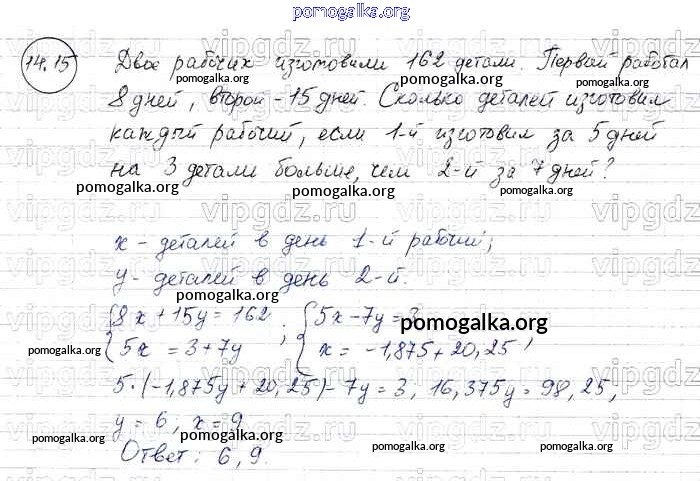 pomogalka.org
14.15 Двое рабочих изготовили 162 детали. Первый работал
pomogalka.org pomogalka.org pomogalka.org
8 дней, второй - 15 дней. Сколько деталей изготовил
каждый рабочий, если 1-й изготовил за 5 дней
на 3 детали больше, чем 2-й за 7 дней?
pomogalka.org pomogalka.org pomogalka.org
x - деталей в день 1-й рабочий;
y - деталей в день 2-й.
pomogalka.org
{8x + 15y = 162 ; {5x - 7y = 3
pomogalka.org
5x = 3 + 7y x = -1,875 + 20,25 ,
pomogalka.org pomogalka.org
5·(-1,875y + 20,25) - 7y = 3; 16,375y = 98,25,
y = 6; x = 9
pomogalka.org pomogalka.org pomogalka.org
Ответ: 6, 9.
pomogalka.org